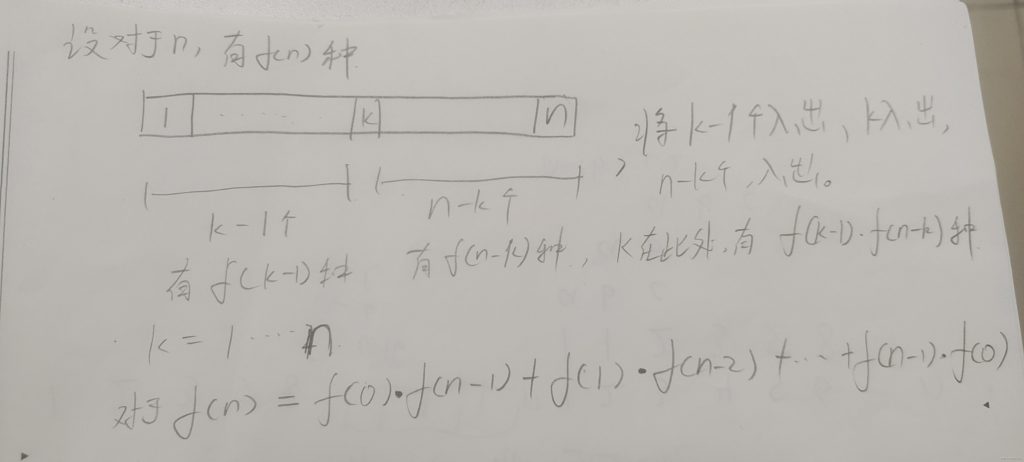 设对于n, 有f(n)种
1 ····· k n
将k-1个入、出、k入、出,
n-k个, 入、出。
k-1个 n-k个
有f(k-1)种 有f(n-k)种, k在此处, 有 f(k-1)·f(n-k)种
k = 1 ··· n
对于f(n) = f(0)·f(n-1)+f(1)·f(n-2)+···+f(n-1)·f(0)